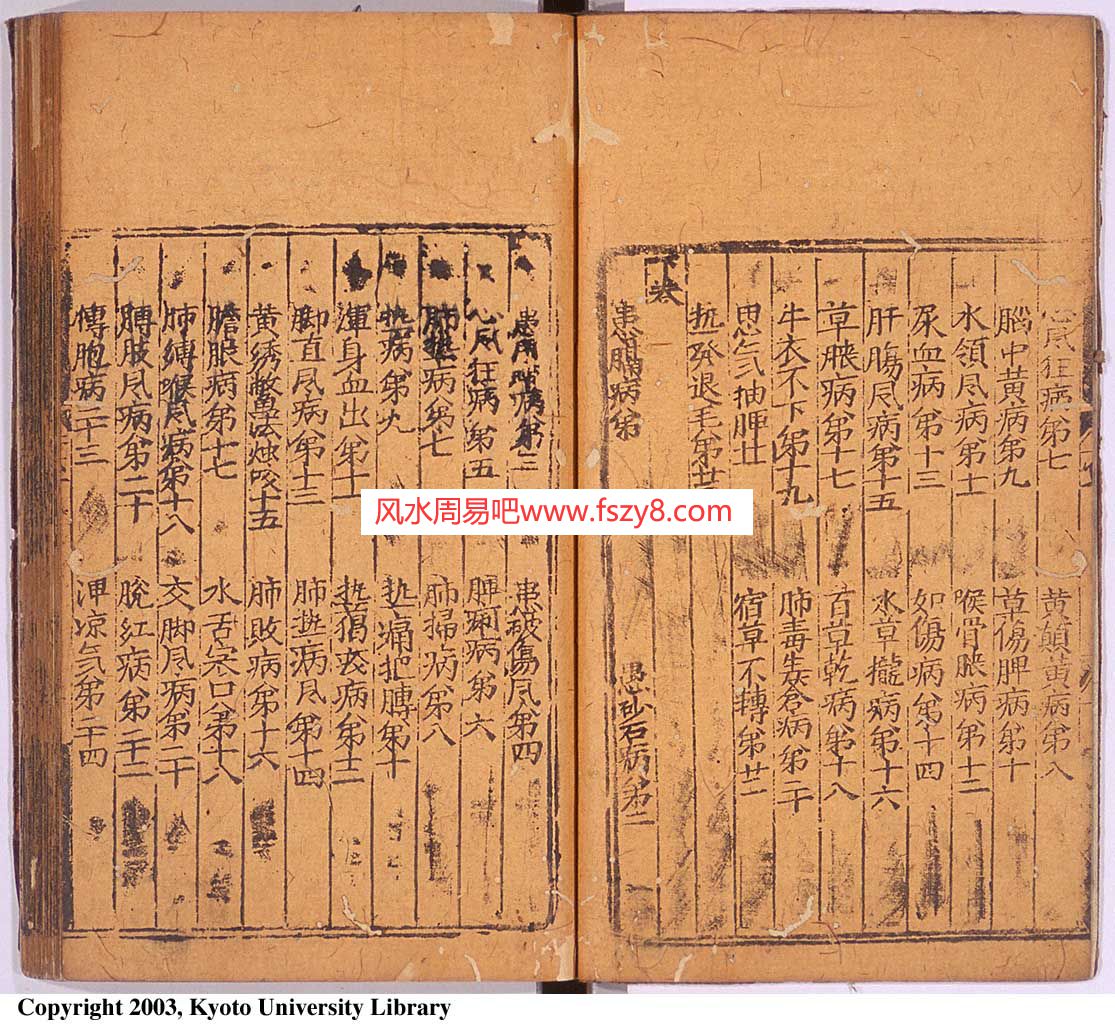 心风狂病第七
黄顛黄病第八
腦中黄病第九
草傷脾病第十
水領风病第十一
喉骨脹病第十二
尿血病第十三
如傷病第十四
肝腸风病第十五
水草攏病第十六
草脹病第十七
百草乾病第十八
牛衣不下第十九
肺毒生瘡病第二十
患气抽脾廿
宿草不轉第廿二
热發退毛第廿三
下卷
患膈病第
患砂石病第二
病第三
患破傷风第四
心风狂病第五
脾病第六
肺热病第七
肺掃病第八
热病第九
热痛把膊第十
渾身血出第十一
热病第十二
脚直风病第十三
肺热病风第十四
黄绣十五
肺敗病第十六
膽脹病第十七
水舌寒口第十八
肺縛喉风病第十八
交脚风病第二十
膊肢风病第二十
脱红病第二十二
傳胞病二十三
冷气第二十四
风水周易吧www.fszy8.com
Copyright 2003, Kyoto University Library